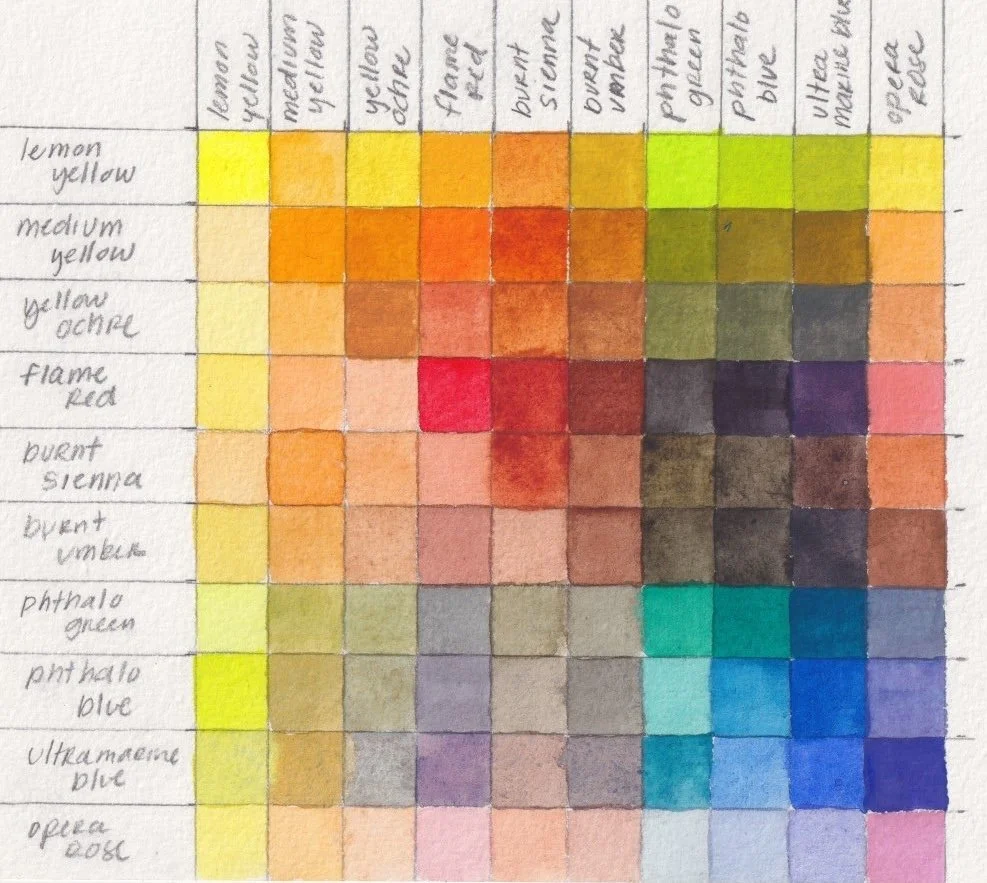 lemon
yellow
medium
yellow
yellow
ochre
flame
red
burnt
sienna
burnt
umber
phthalo
green
phthalo
blue
ultra
marine blue
opera
rose
lemon
yellow
medium
yellow
yellow
ochre
flame
red
burnt
sienna
burnt
umber
phthalo
green
phthalo
blue
ultramarine
blue
opera
rose